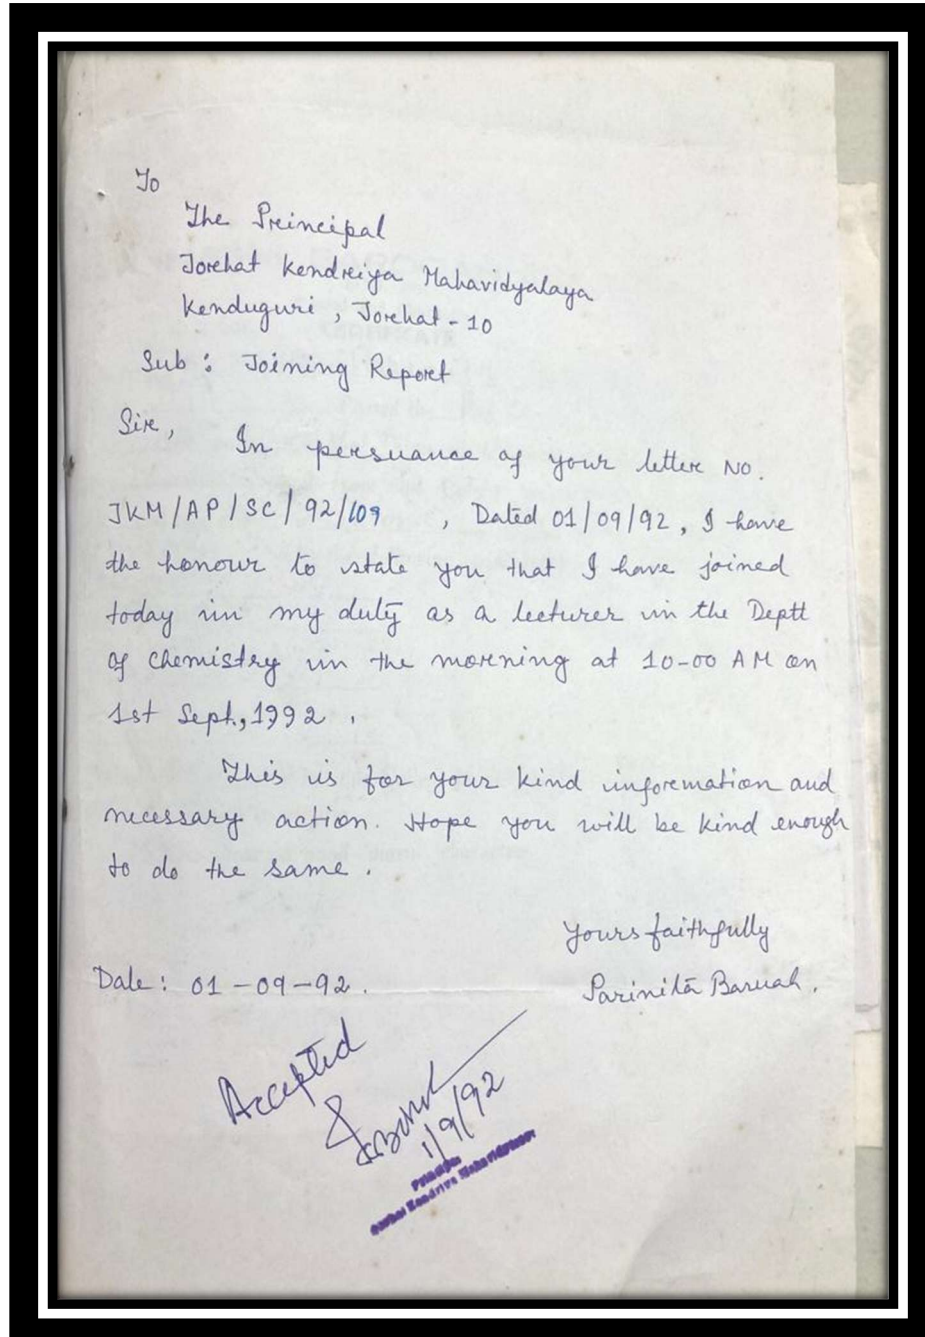 To
The Principal
Jorhat Kendriya Mahavidyalaya
Kenduguri, Jorhat - 10
Sub : Joining Report
Sir,
In persuance of your letter No.
JKM/AP/SC/92/109 , Dated 01/09/92, I have
the honour to state you that I have joined
today in my duty as a lecturer in the Deptt
of Chemistry in the morning at 10-00 AM on
1st Sept, 1992 .
This is for your kind information and
necessary action. Hope you will be kind enough
to do the same .
Yours faithfully
Date : 01-09-92.
Parinita Baruah.
Accepted
1/9/92
Principal
Jorhat Kendriya Mahavidyalaya